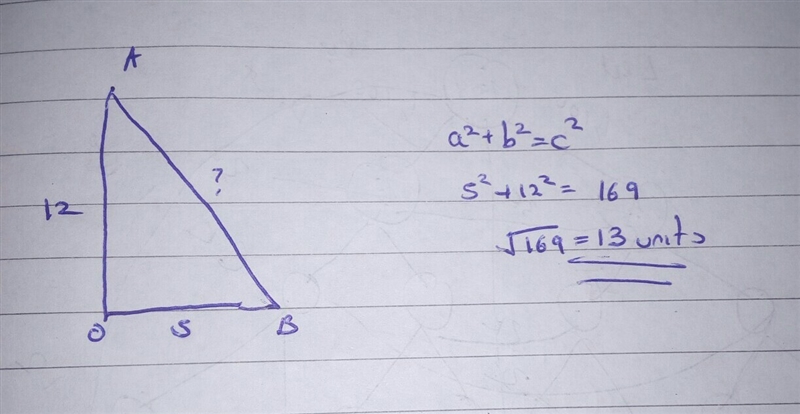 A
?
12
O 5 B
a²+b²=c²
5²+12²= 169
√169 = 13 units